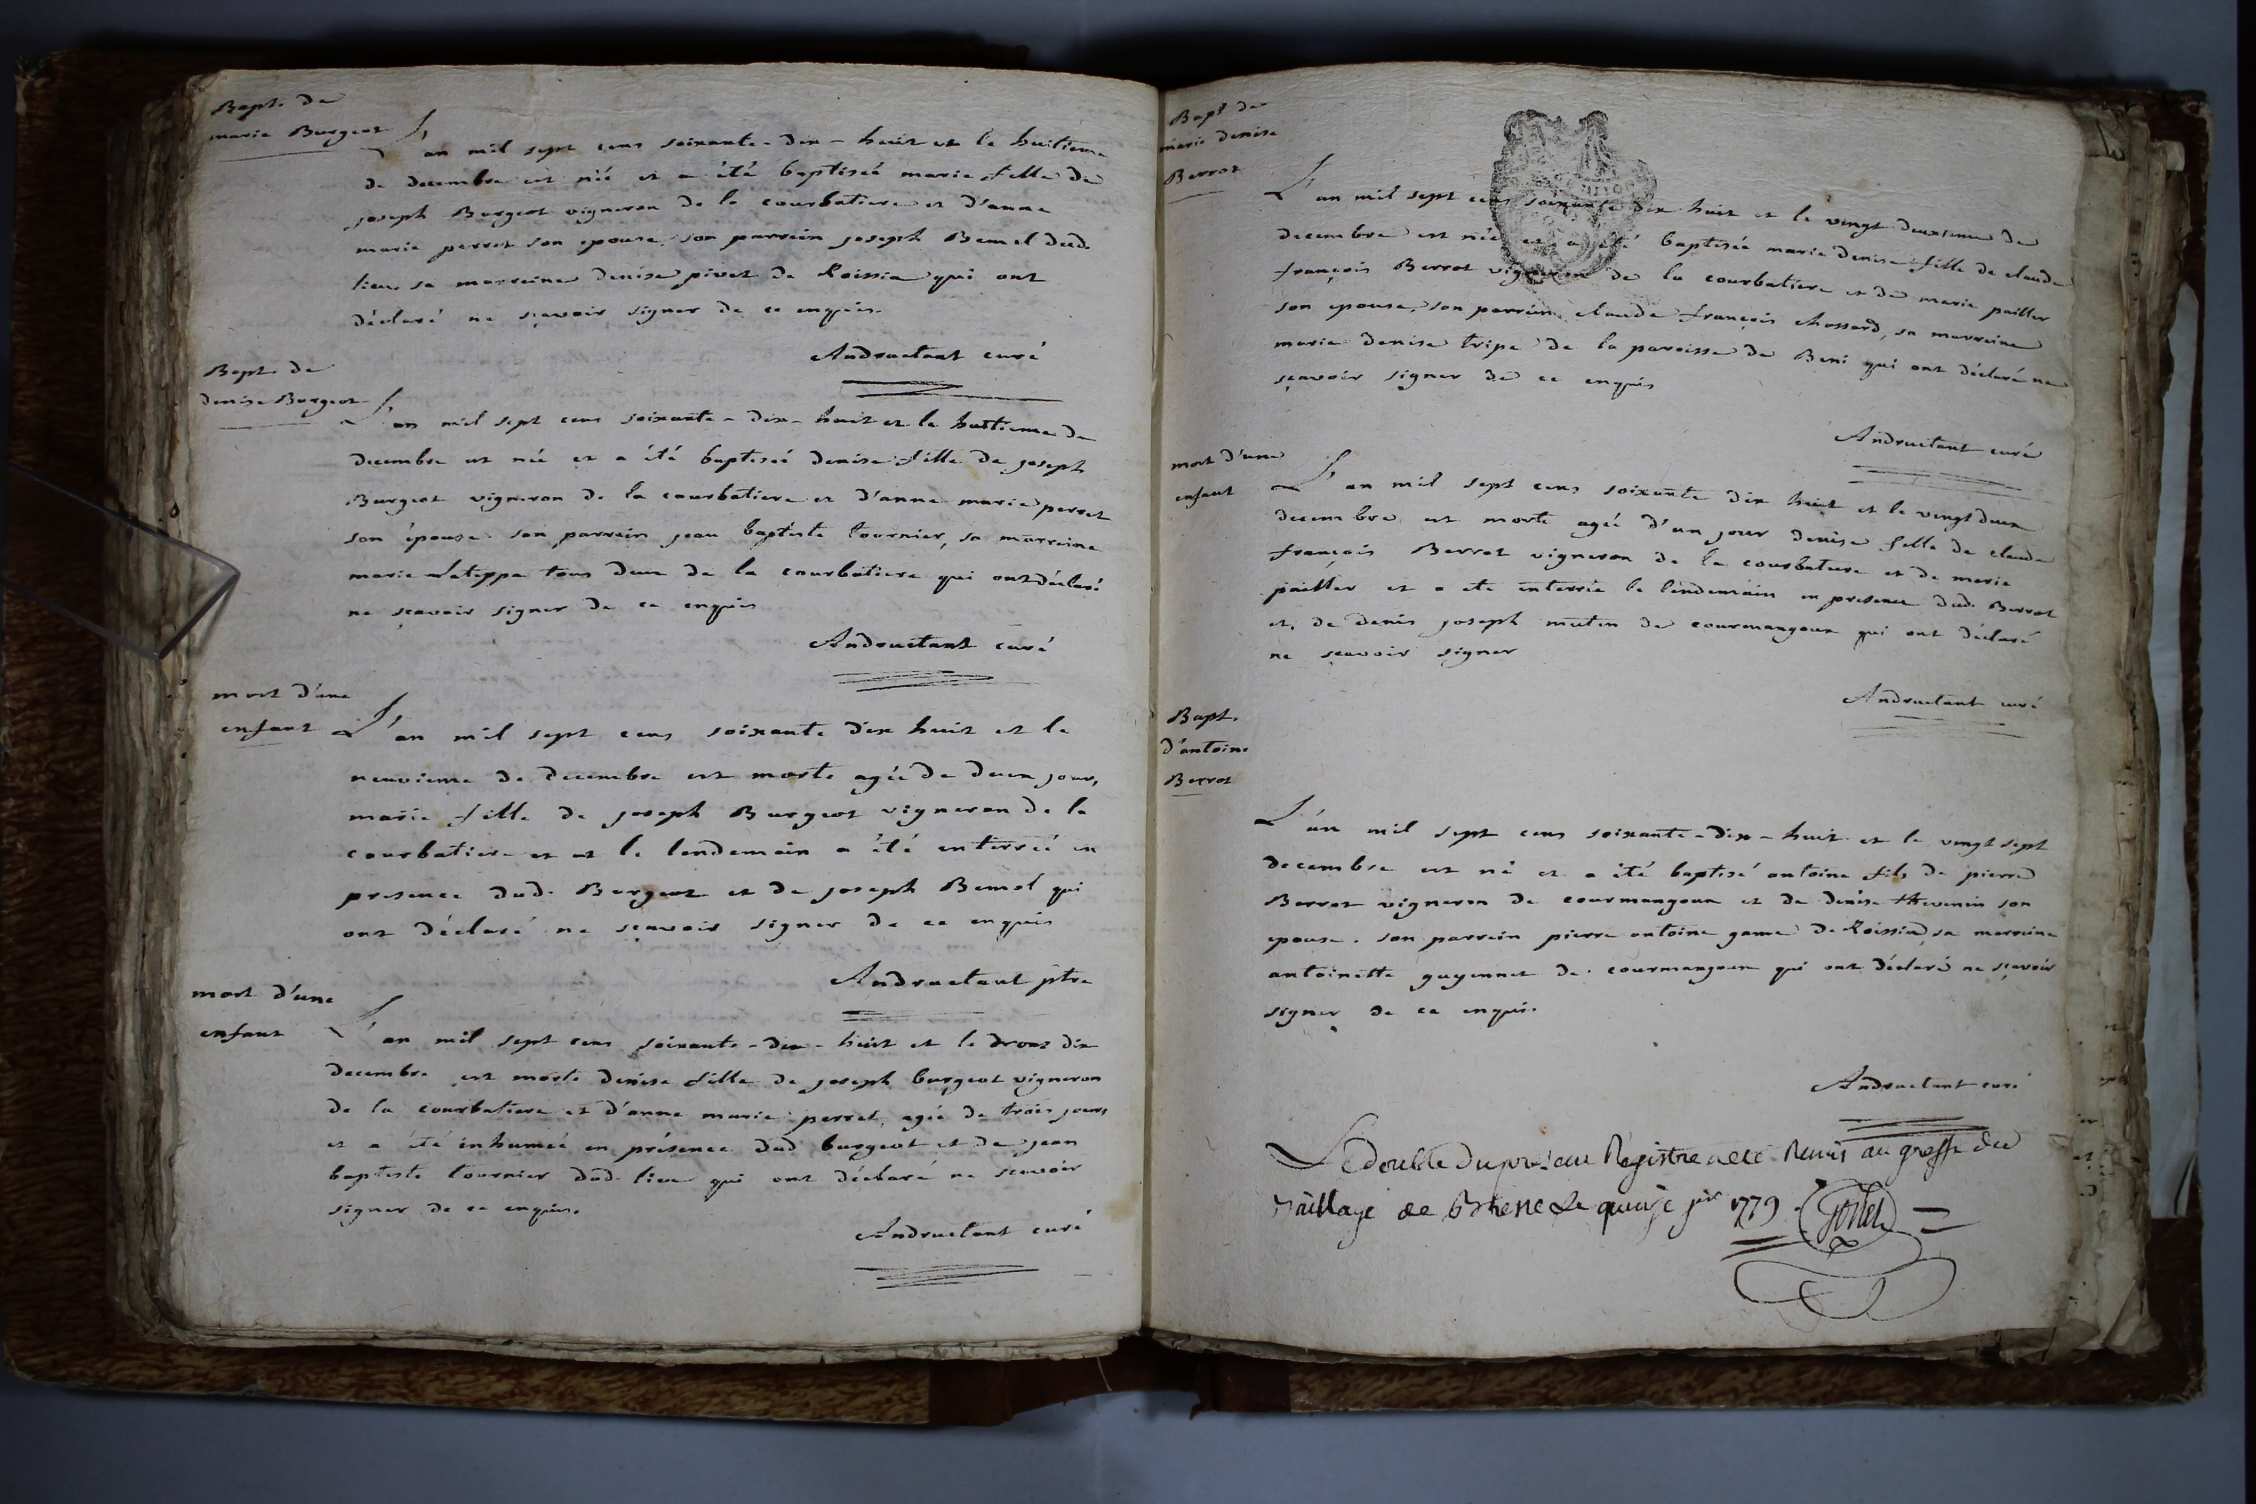 Bapt. de
marie Burgeot
L'an mil sept cens soixante-dix-huit et le huitieme
de decembre est née et a été baptiseé marie fille de
joseph Burgeot vigneron de la courbatiere et d'anne
marie perret son epouse, son parrein joseph Bemel dud.
lieu sa marreine denise pivet de Roissia qui ont
déclaré ne sçavoir signer de ce enquis.
Andruetant curé
Bapt. de
denise Burgeot
L'an mil sept cens soixante-dix-huit et le huitieme de
decembre est née et a été baptiseé denise fille de joseph
Burgeot vigneron de la courbatiere et d'anne marie perret
son épouse son parrein jean baptiste tournier, sa marreine
marie tous deux de la courbatiere qui ont déclaré
ne sçavoir signer de ce enquis
Andruetant curé
mort d'une
enfant
L'an mil sept cens soixante dix huit et le
neuvieme de decembre est morte agée de deux jours,
marie fille de joseph Burgeot vigneron de la
courbatiere et et le lendemain a été enterreé en
presence dud. Burgeot et de joseph Bemel qui
ont déclaré ne sçavoir signer de ce enquis
Andruetant ptre
mort d'une
enfant
L'an mil sept cens soixante-dix-huit et le dix
decembre est morte denise fille de joseph burgeot vigneron
de la courbatiere et d'anne marie perret, agée de trois jours
et a été inhumeé en présence dud burgeot et de jean
baptiste tournier dud. lieu qui ont déclaré ne scavoir
signer de ce enquis.
Andruetant curé
Bapt de
marie denise
Berrot
L'an mil sept cens soixante dix huit et le vingt deuxieme de
decembre est née et a été baptisée marie denise fille de claude
françois Berrot vigneron de la courbatiere et de marie pailler
son epouse, son parrein claude françois chossard, sa marreine
marie denise tripe de la paroisse de Beni qui ont déclaré ne
sçavoir signer de ce enquis
Andruetant curé
mort d'une
enfant
L'an mil sept cens soixante dix huit et le vingt deux
decembre est morte agée d'un jour denise fille de claude
françois Berrot vigneron de la courbatiere et de marie
pailler et a ete enterrée le lendemain en presence dud. Berrot
et de denis joseph mutin de courmangoux qui ont déclaré
ne sçavoir signer
Andruetant curé
Bapt.
d'antoine
Berrot
L'an mil sept cens soixante-dix-huit et le vingt sept
decembre est né et a été baptisé antoine fils de pierre
Berrot vigneron de courmangoux et de denise thevenin son
epouse. son parrein pierre antoine game de Roissia, sa marreine
antoinette guyennet de courmangoux qui ont déclaré ne sçavoir
signer de ce enquis.
Andruetant curé
Le double du present Registre a eté Remis au greffe du
Bailliage de Bresse Le quinze jer 1779.